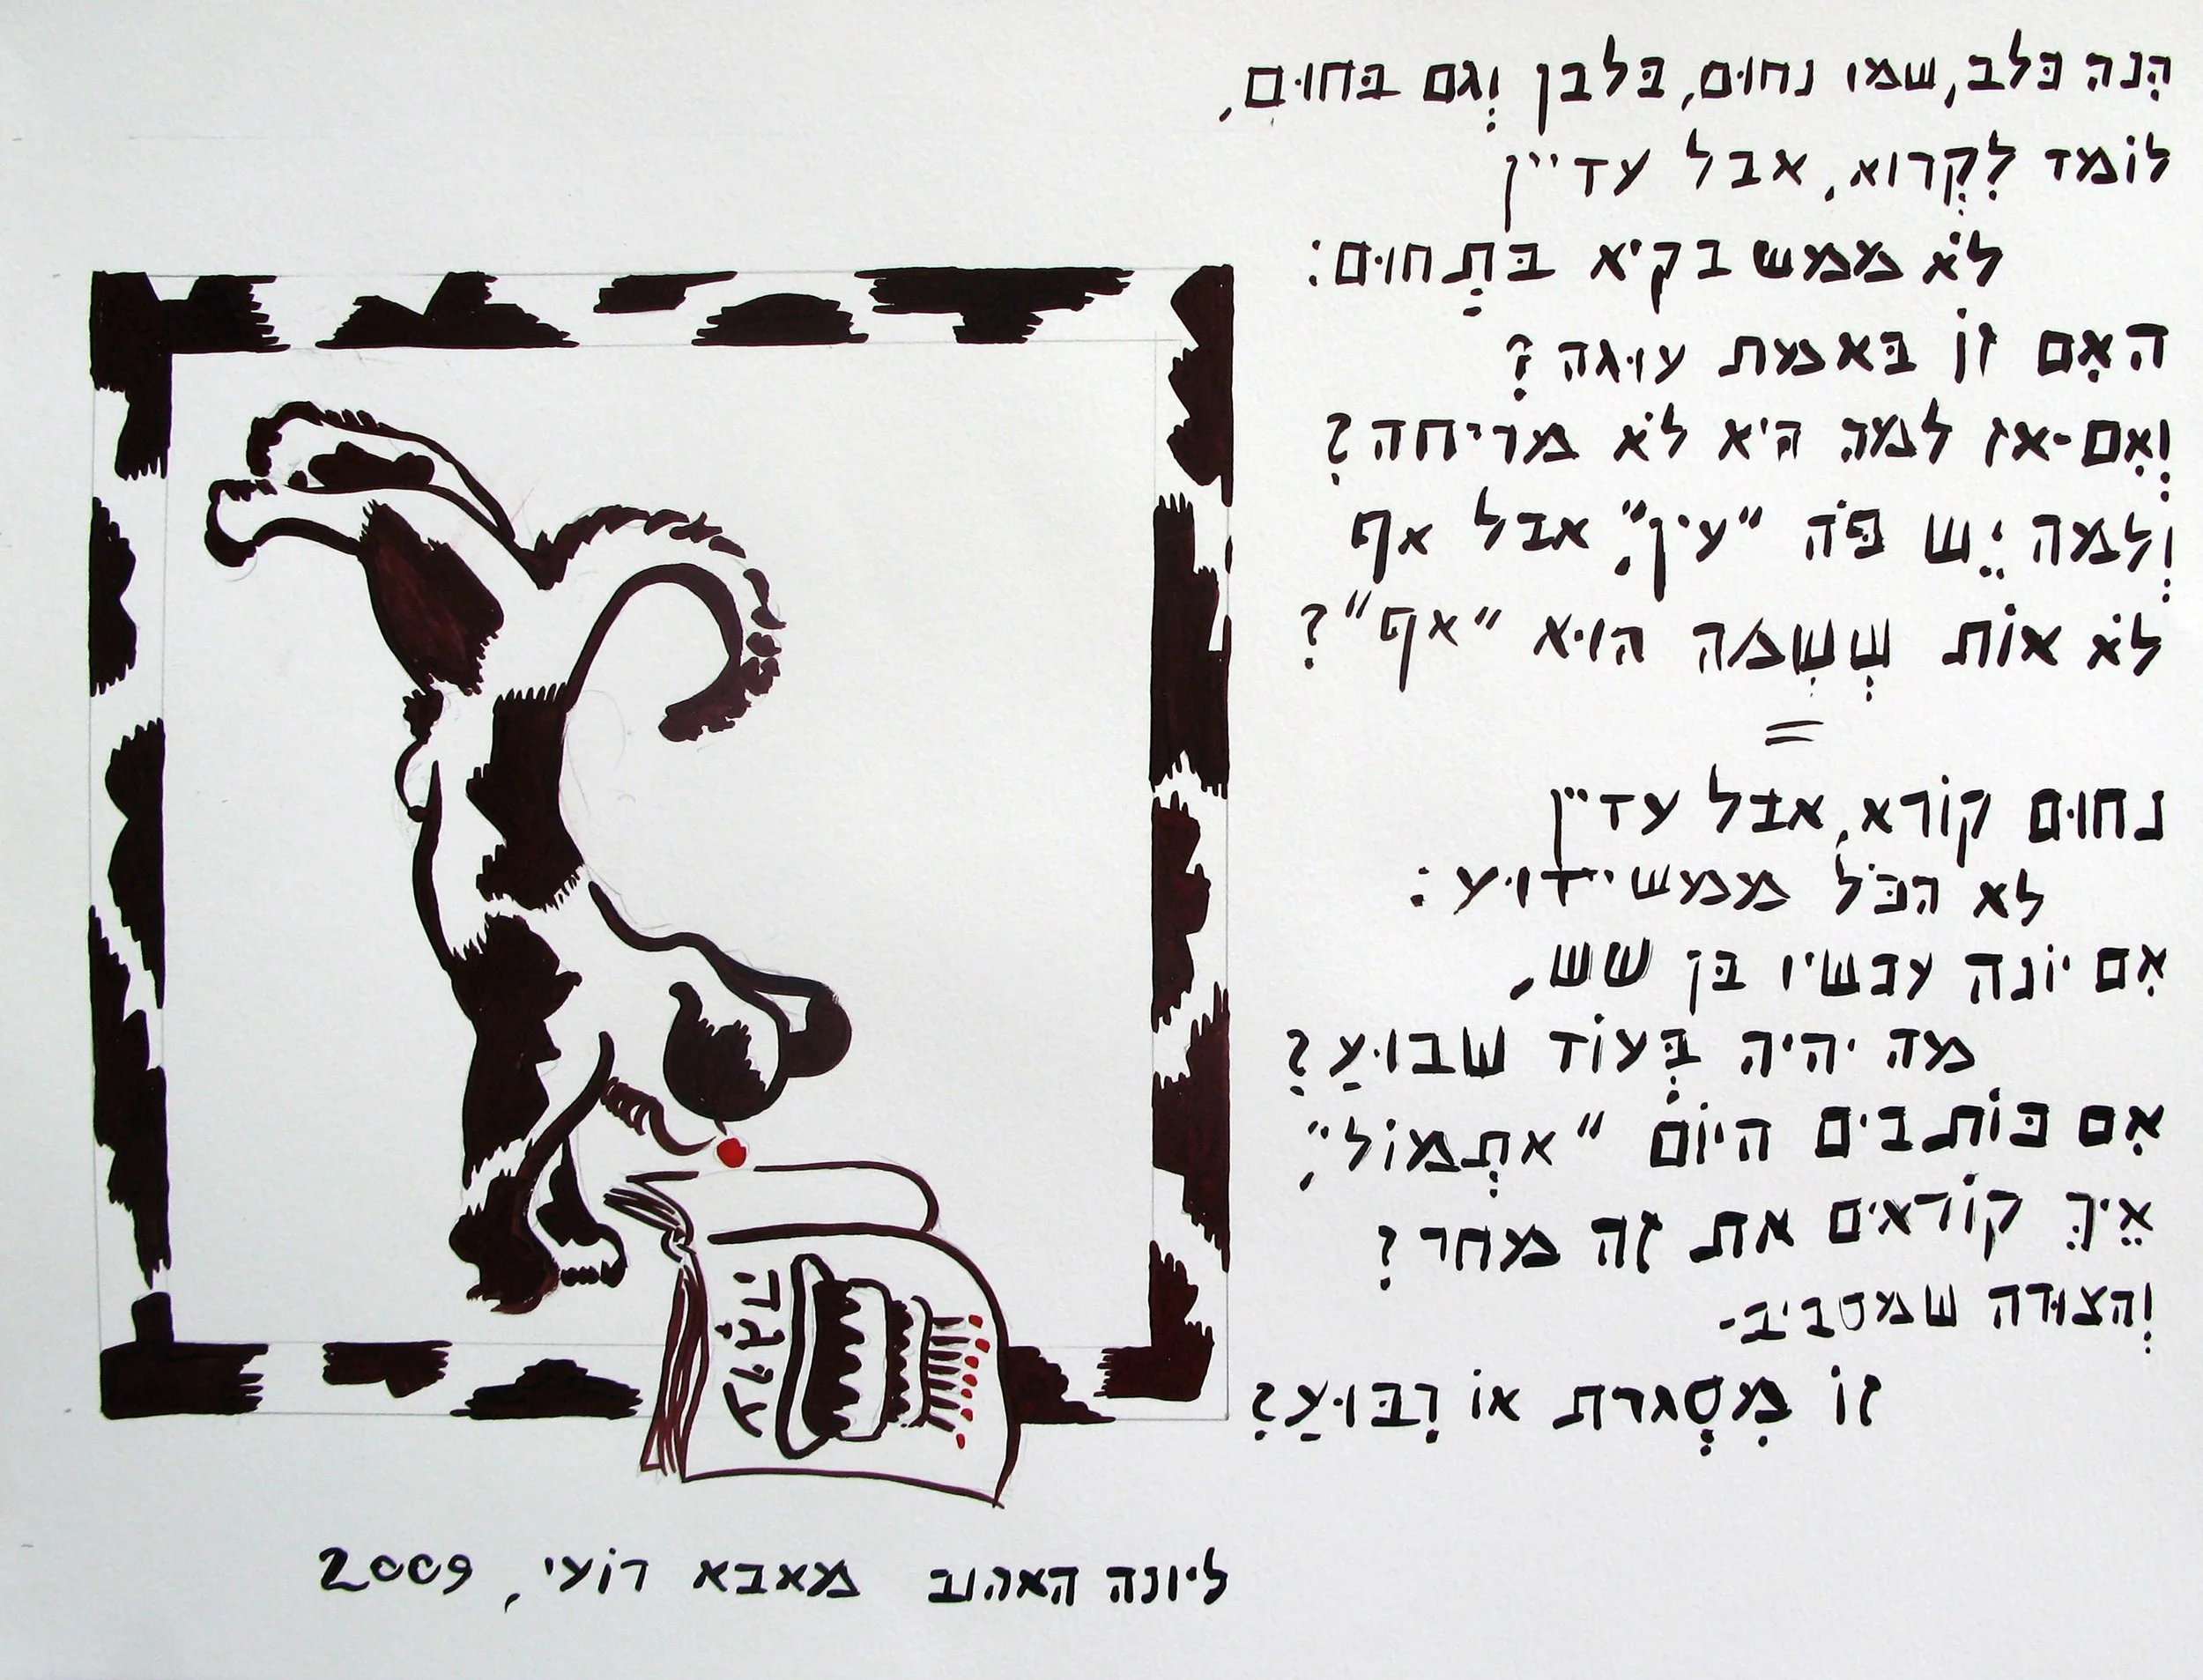 הִנה כּלב, שמו נחוּם, בּלבן וְגם בּחוּם,
לוֹמד לִקְרוא, אבל עדיין
לֹא ממש בקיא בּתְחוּם:
האִם זוֹ בּאמת עוּגה?
וְאִם-אז למה היא לֹא מריחה?
וְלמה יֵש פֹּה "עין", אבל אף
לֹא אוֹת שֶשְמה הוּא "אף"?
=
נחוּם קוֹרא, אבל עדיין
לא הכֹּל ממש ידוּע:
אִם יוֹנה עכשיו בּן שש,
מה יהיה בְּעוֹד שבוּעַ?
אִם כּוֹתבים היוֹם "אתְמוֹל",
אֵיךְ קוֹראים את זֶה מחר?
וְהצוּרה שמסביב-
זוֹ מִסְגרת אוֹ רִבּוּעַ?
ליונה האהוב מאבא רוֹעי, 2009